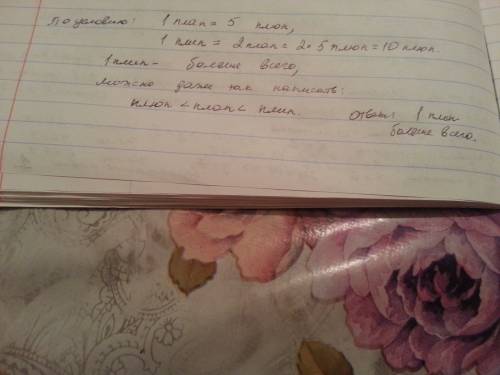 По условию: 1 плап = 5 плюп,
1 плип = 2 плап = 2·5 плюп = 10 плюп.
1 плип - больше всего,
можно даже так написать:
плюп < плап < плип. Ответ: 1 плип
больше всего.